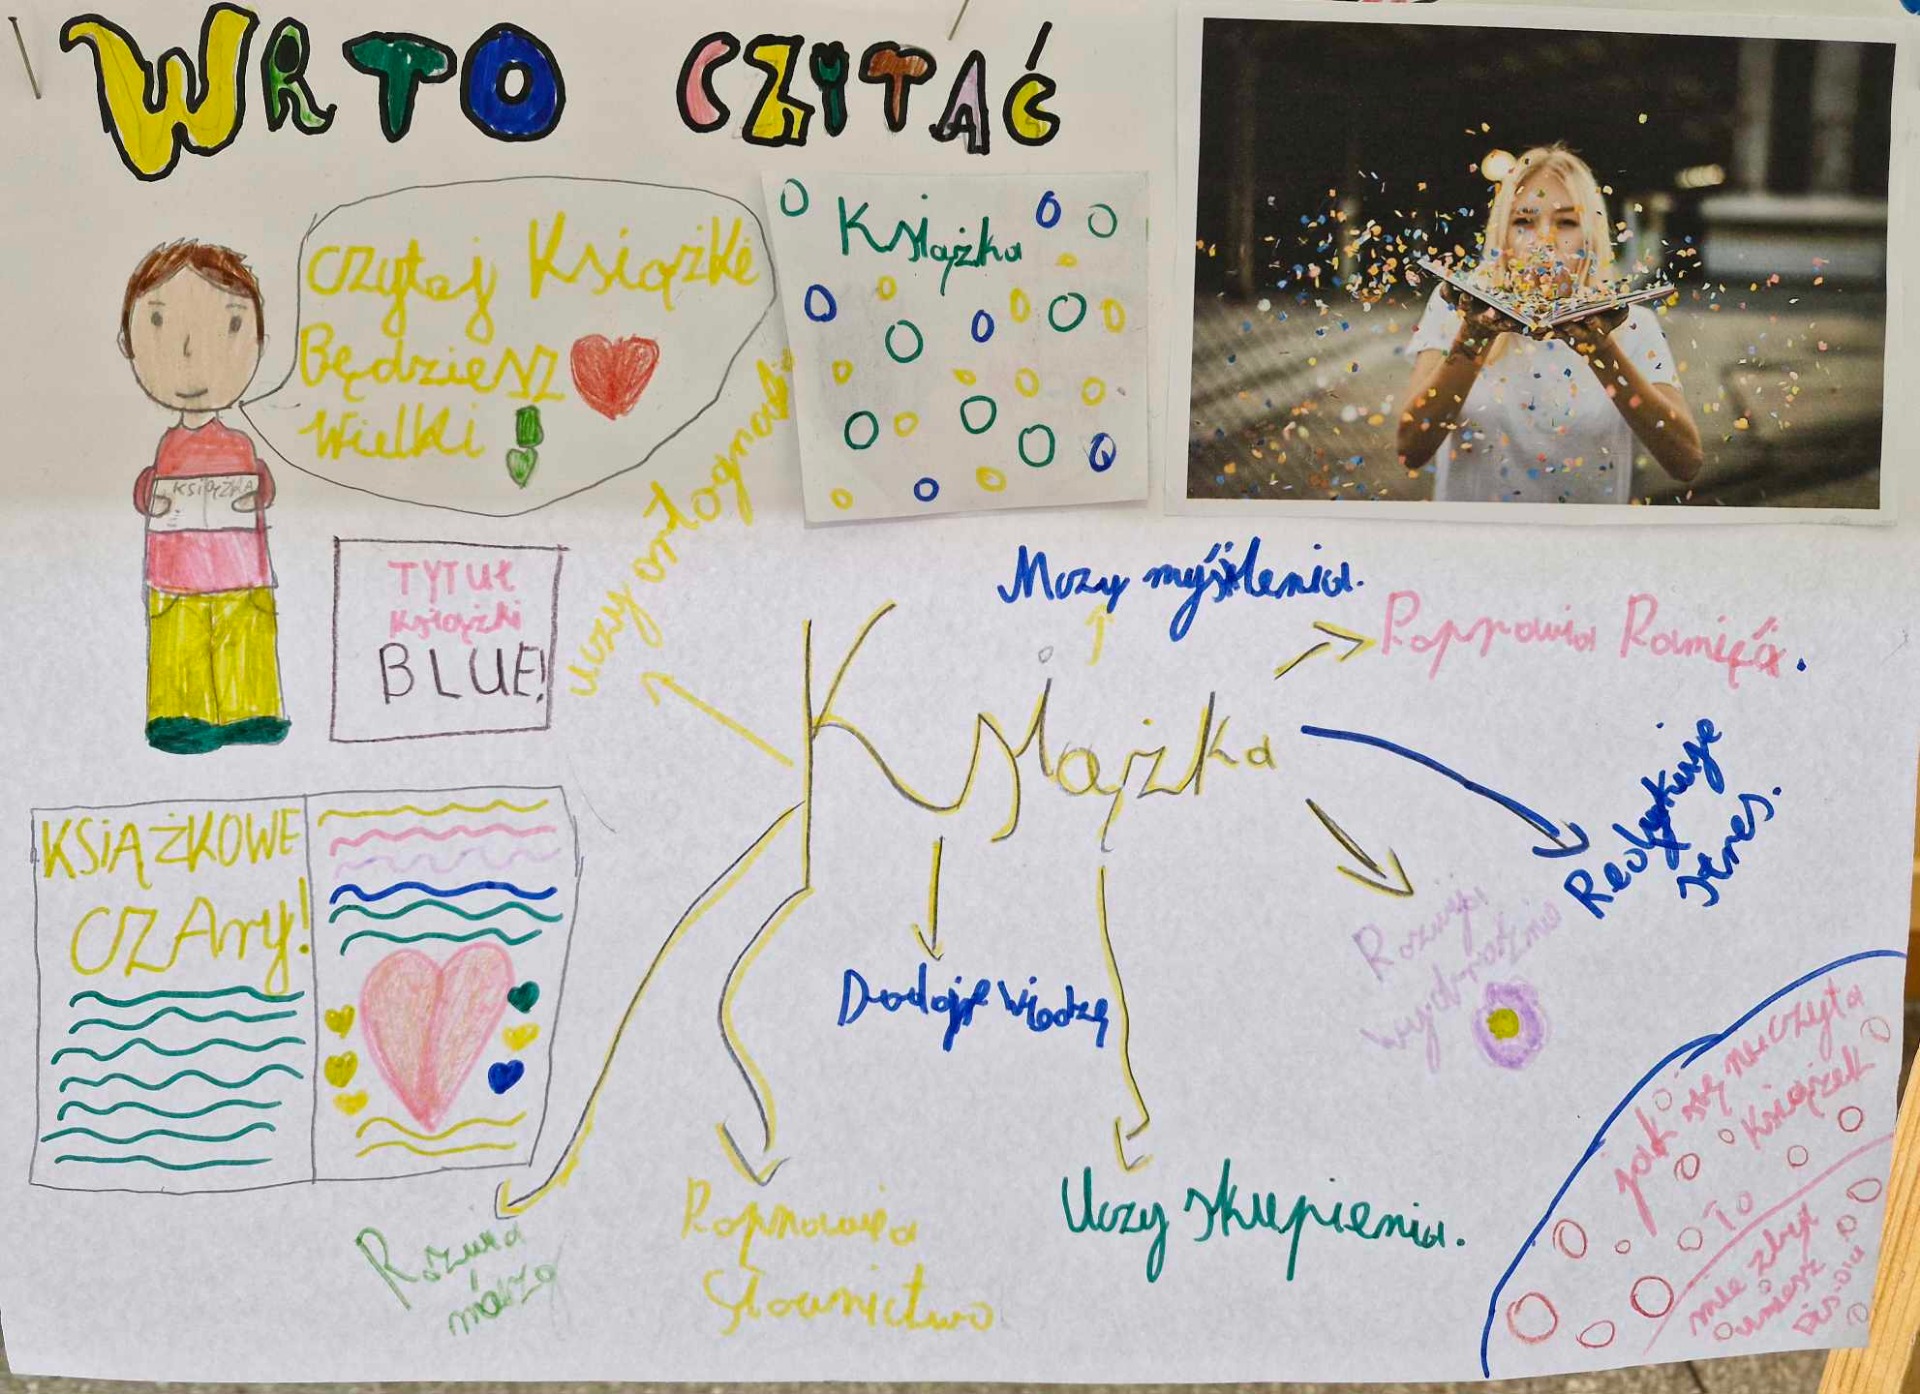 WRTO CZYTAĆ
czytaj Książkē
Będziesz
Wielki
Książka
KSIĄŻKA
TYTUŁ
Książki
BLUE!
uczy ortografi
Muzy myślenia.
Poprawia Pamięć.
Książka
Redukuje
stres.
Rozwija
wyobraźnie
Dodaje wiedzę
KSIĄŻKOWE
CZAry!
Rozwija
mózg
Poprawia
Słownictwo
Uczy skupienia.
jak się nie czyta
Książek
To
nie zbyt
umiesz